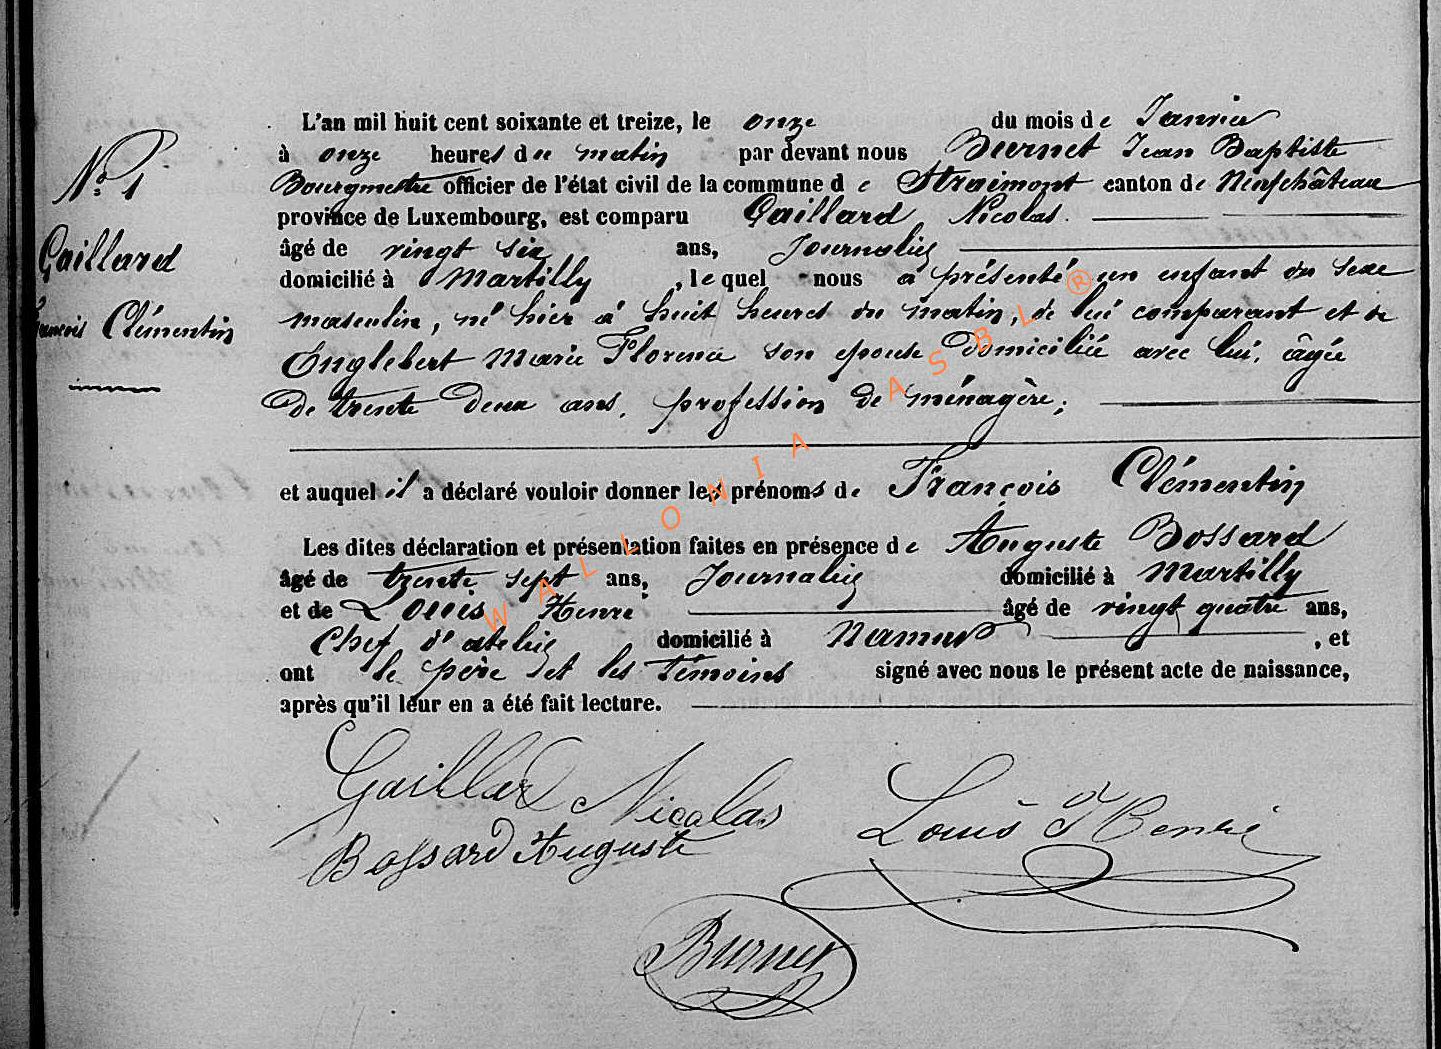 N° 1
Gaillard
François Clémentin
L'an mil huit cent soixante et treize, le onze du mois de Janvier
à onze heures du matin par devant nous Burnet Jean Baptiste
Bourgmestre officier de l'état civil de la commune de Straimont canton de Neufchâteau
province de Luxembourg, est comparu Gaillard Nicolas.
âgé de vingt six ans, Journalier
domicilié à Martilly, lequel nous a présenté un enfant du sexe
masculin, né hier à huit heures du matin, de lui comparant et de
Englebert Marie Florence son epouse domiciliée avec lui, âgée
de trente deux ans, profession de ménagère;
et auquel il a déclaré vouloir donner les prénoms de François Clémentin
Les dites déclaration et présentation faites en présence de Auguste Bossard
âgé de trente sept ans, Journalier domicilié à Martilly
et de Louis Henri âgé de vingt quatre ans,
Chef d'atelier domicilié à Namur, et
ont le père et les témoins signé avec nous le présent acte de naissance,
après qu'il leur en a été fait lecture.
Gaillard Nicolas
Louis Henri
Bossard Auguste
Burnet
WALLONIA ASBL ®